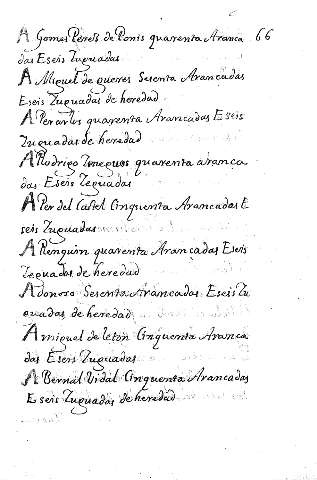 A Gomes Peres de Ponis quarenta Aranca 66
das Eseis Zuguadas
A Miguel de guerres Sesenta Arancadas
Eseis Zuguadas de heredad
A Perarlus quarenta Arancadas Eseis
Zuguadas de heredad
A Rudrigo Ineguos quarenta aranca
das Eseis Zeguadas
A Per del Castel Cinquenta Arancadas E
seis Zuguadas
A Penguim quarenta Arancadas Eseis
Zeguadas de heredad
A donoro Sesenta Arancadas Eseis Zu
guadas de heredad
A miguel de leton Cinquenta Aranca
das Eseis Zuguadas
A Bernal Vidal Cinquenta Arancadas
Eseis Zuguadas de heredad